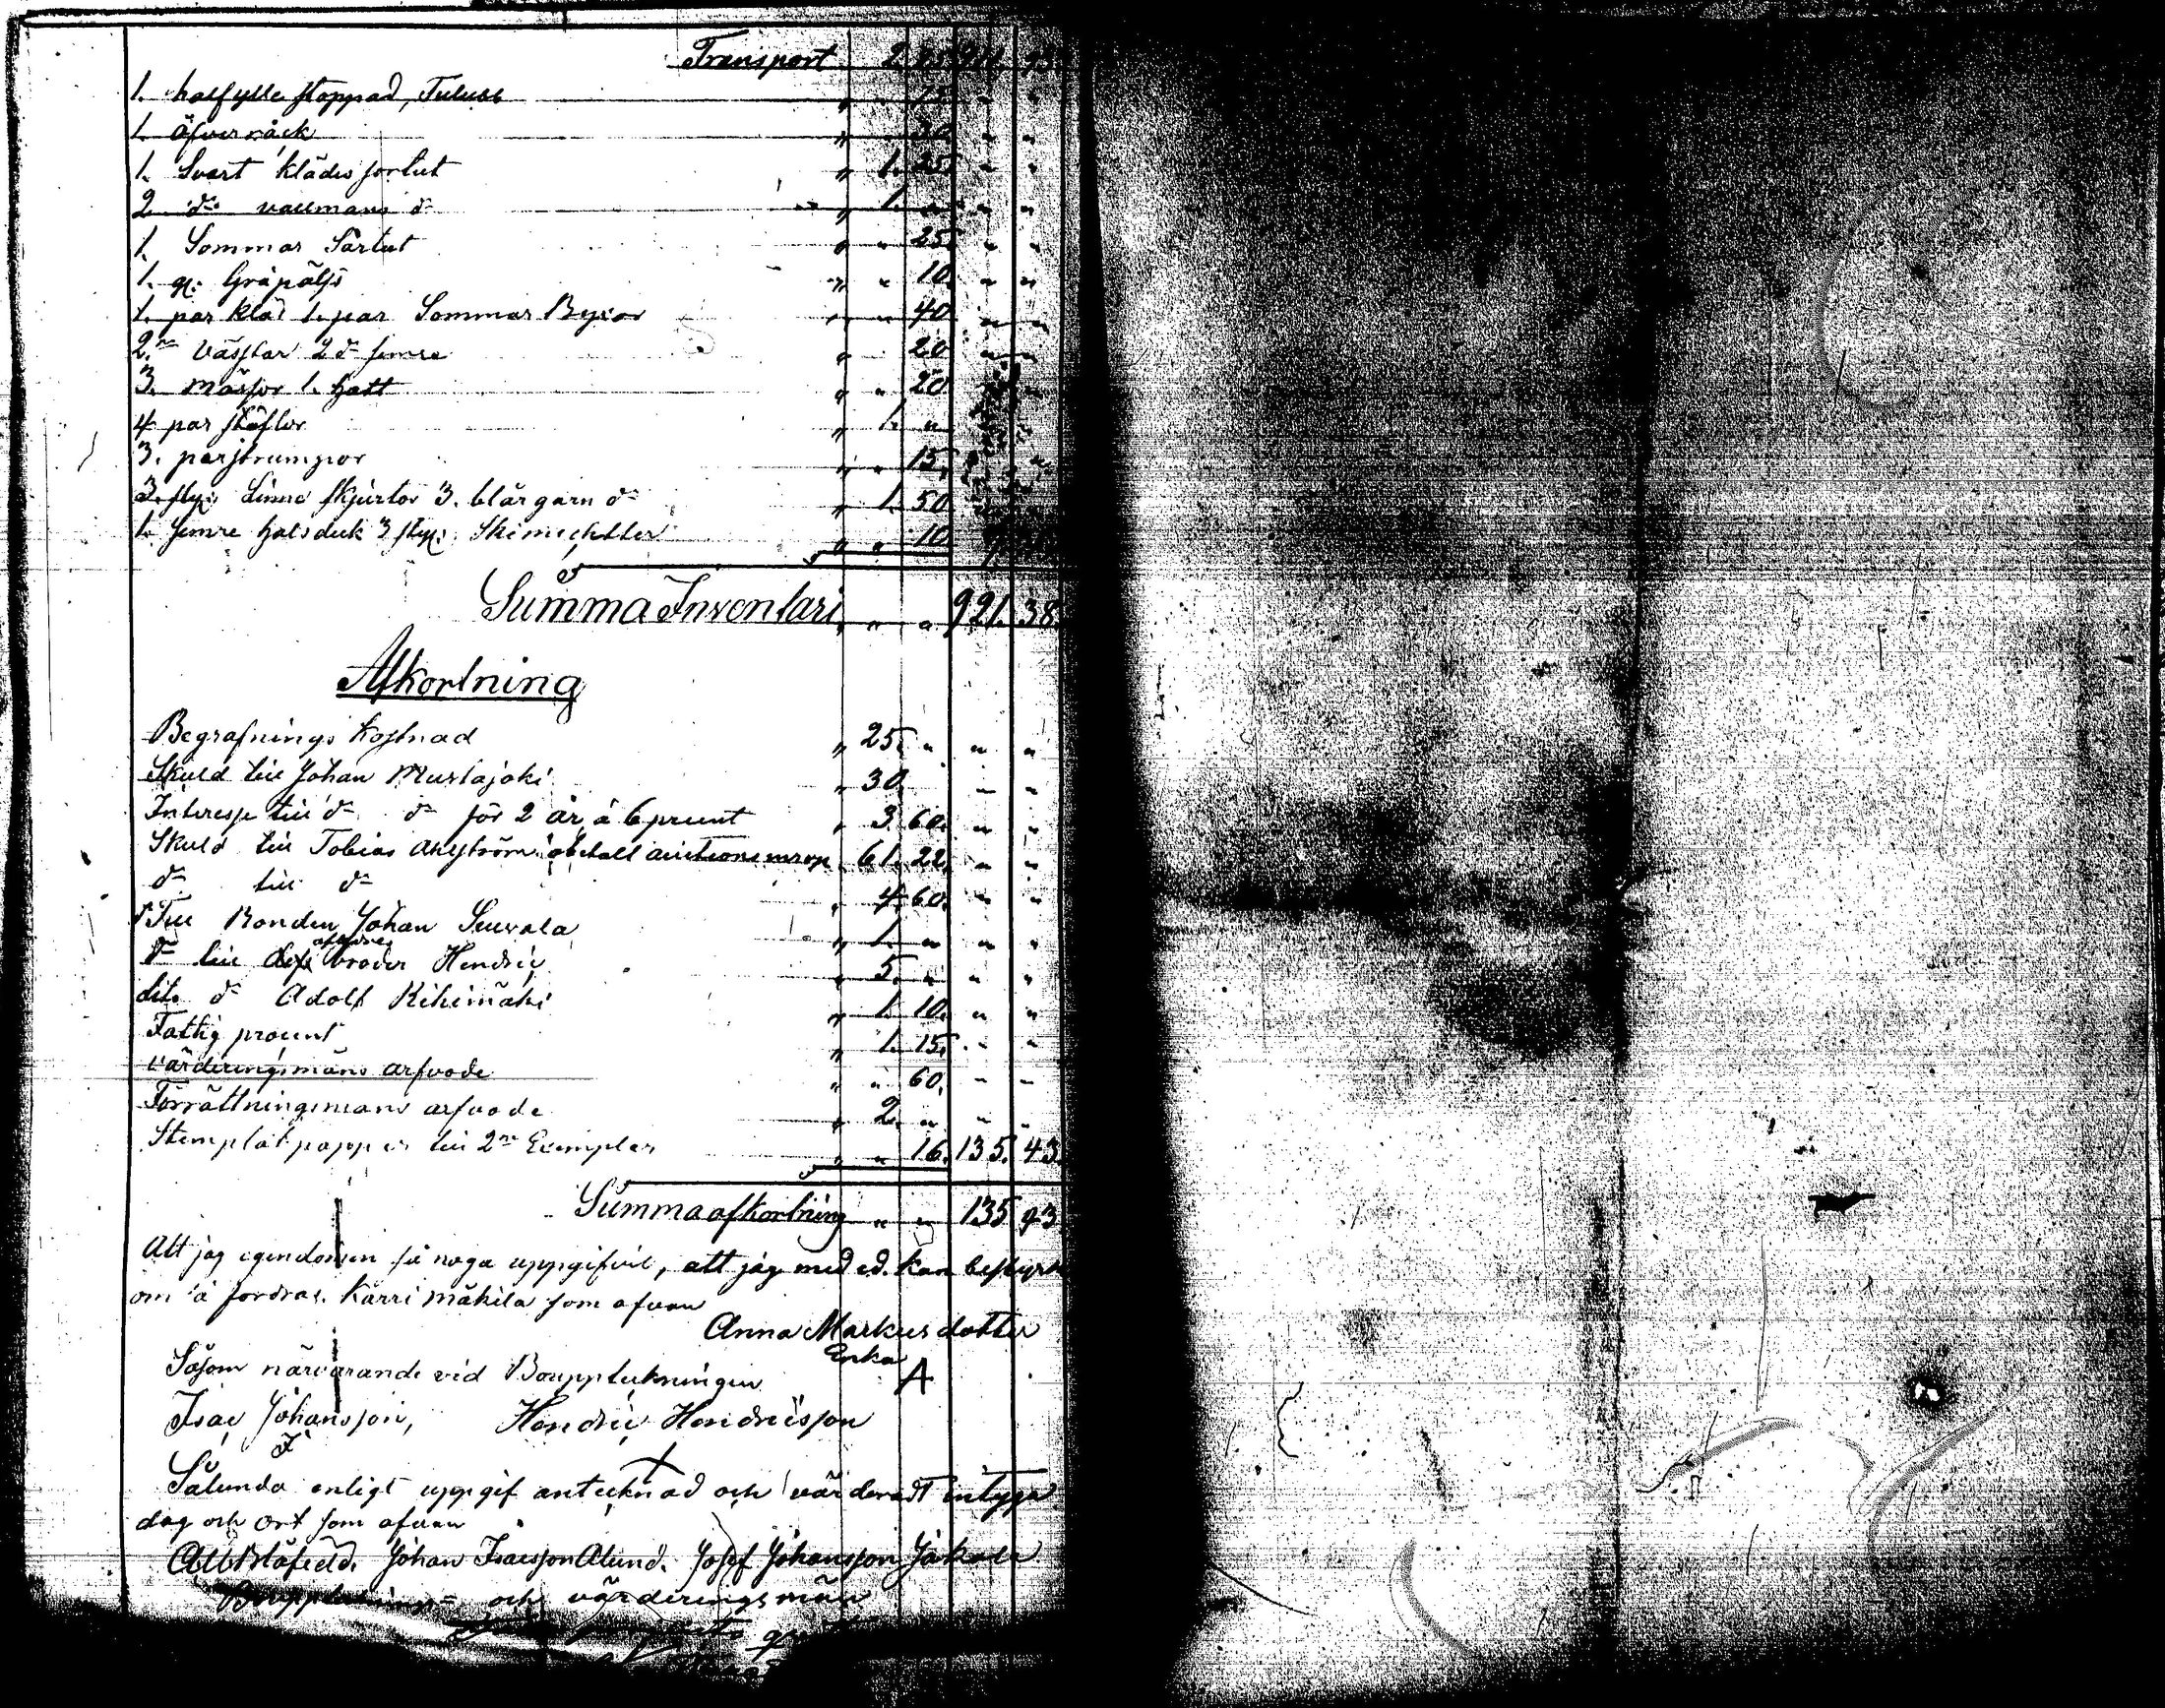 Transport 2. 85 911. 93
1. halfylle stoppad, Tulubb " " 75 " "
1. öfverråck " " 30 " "
1. Svart klädes sortut " 1. 25. " "
2 d:o vallmans d:o " 1. " " "
1. Sommar Sortut " " 25. " "
1. gl: Gråpälss " " 10. " "
1. par kläd 1. par Sommar Byxor " " 40 " "
2:ne Västar 2 d:o semre " 20 " "
3. mässor 1. hatt " " 20. "
4 par stöflor " 1. "
3. par strumpor " " 15. "
3. sty: Linne skjortor 3. blårgarn d:o " 1. 50
1. semre halsduk 3 sty: " " 10.
Summa Inventari " " " 921. 38.
Afkortning
Begrafnings kostnad " 25. " " "
Skuld till Johan Mustajoki " 30. " "
Interesse till d:o d:o för 2 år à 6 procent " 3. 60. " "
Skuld till Tobias Ahlström obetalt auctions " 61. 22. " "
d:o till d:o " 4. 60. " "
Till Bonden Johan Seuvala " 1. " " "
d:o till broder Hendric " 5. " " "
dit. d:o Adolf Kihimäki " 1. 10. " "
Fattig procent " 1. 15. " "
Värderingsmäns arfvode " " 60. " "
Förrättningsmans arfvode " 2. " " "
Stemplat papper till 2:ne Exemplar " " 16. 135. 43.
Summa afkortning " " 135 43
Att jag egendomen så noga uppgifvit, att jag med ed. kan bestyrka
om så fordras. Karrimäkila som ofvan
Anna Markus dotter
Enka
A
Såsom närvarande vid Bouppteckningen
Isac Johansson, Hendric Hendricsson
I
X
Sålunda enligt uppgif antecknad och värderadt intyga
dag och ort som ofvan
Blåfield. Johan Isacsson Ålund. Josef Johansson
Bouppteckning- och värderingsmän